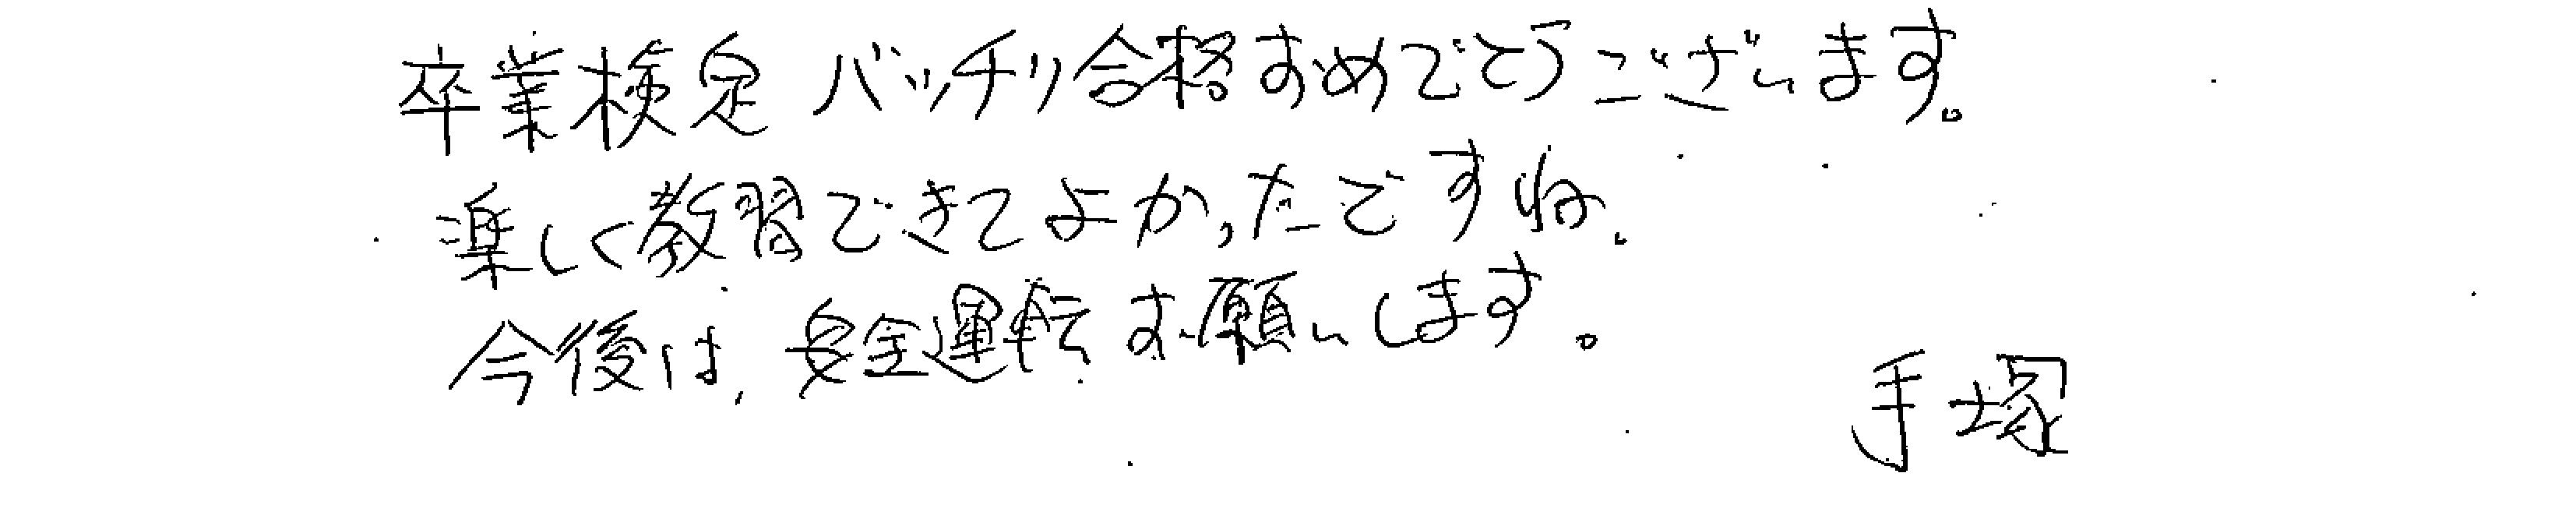 卒業検定 バッチリ合格おめでとうございます。
楽しく教習できてよかったですね.
今後は, 安全運転お願いします。
手塚